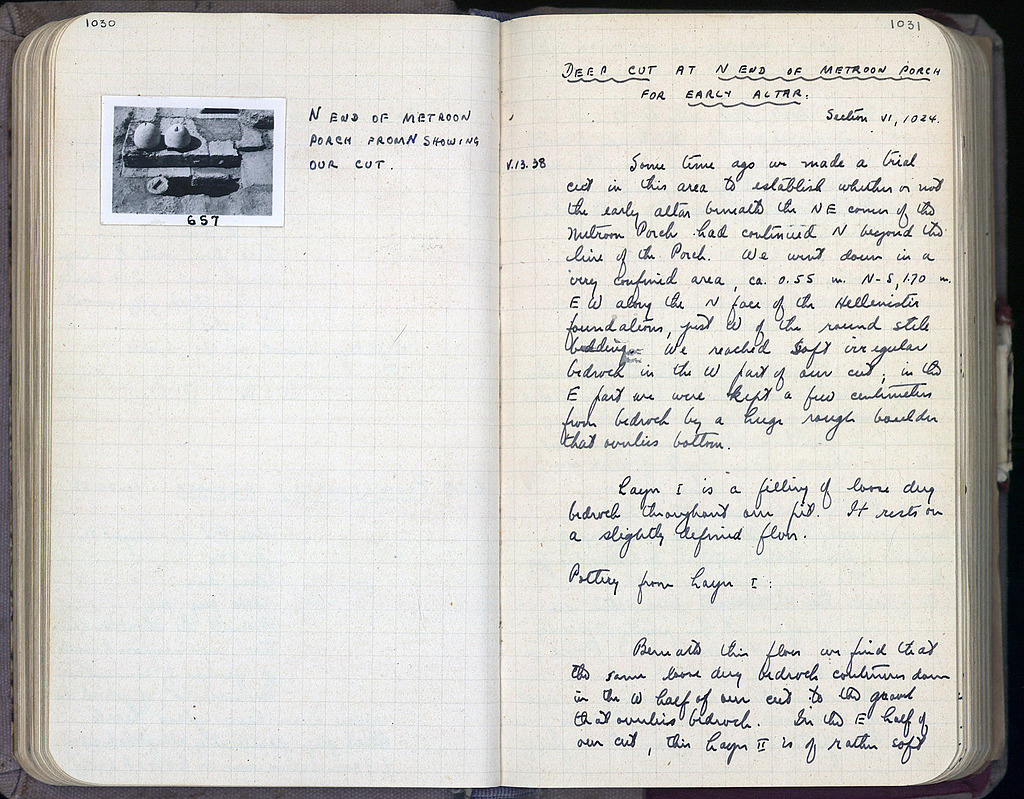 1030
N END OF METROON
PORCH FROM N SHOWING
OUR CUT.
657
1031
DEEP CUT AT N END OF METROON PORCH
FOR EARLY ALTAR.
Section VI, 1024.
V.13.38
Some time ago we made a trial
cut in this area to establish whether or not
the early altar beneath the NE corner of the
Metroon Porch had continued N beyond the
line of the Porch. We went down in a
very confined area, ca. 0.55 m. N-S, 1.70 m.
E W along the N face of the Hellenistic
foundations, just W of the round stele
bedding. We reached soft irregular
bedrock in the W part of our cut; in the
E part we were kept a few centimeters
from bedrock by a huge rough boulder
that overlies bottom.
Layer I is a filling of loose dug
bedrock throughout our pit. It rests on
a slightly defined floor.
Pottery from Layer I:
Beneath this floor we find that
the same loose dug bedrock continues down
in the W half of our cut to the gravel
that overlies bedrock. In the E half of
our cut, this Layer II is of rather soft